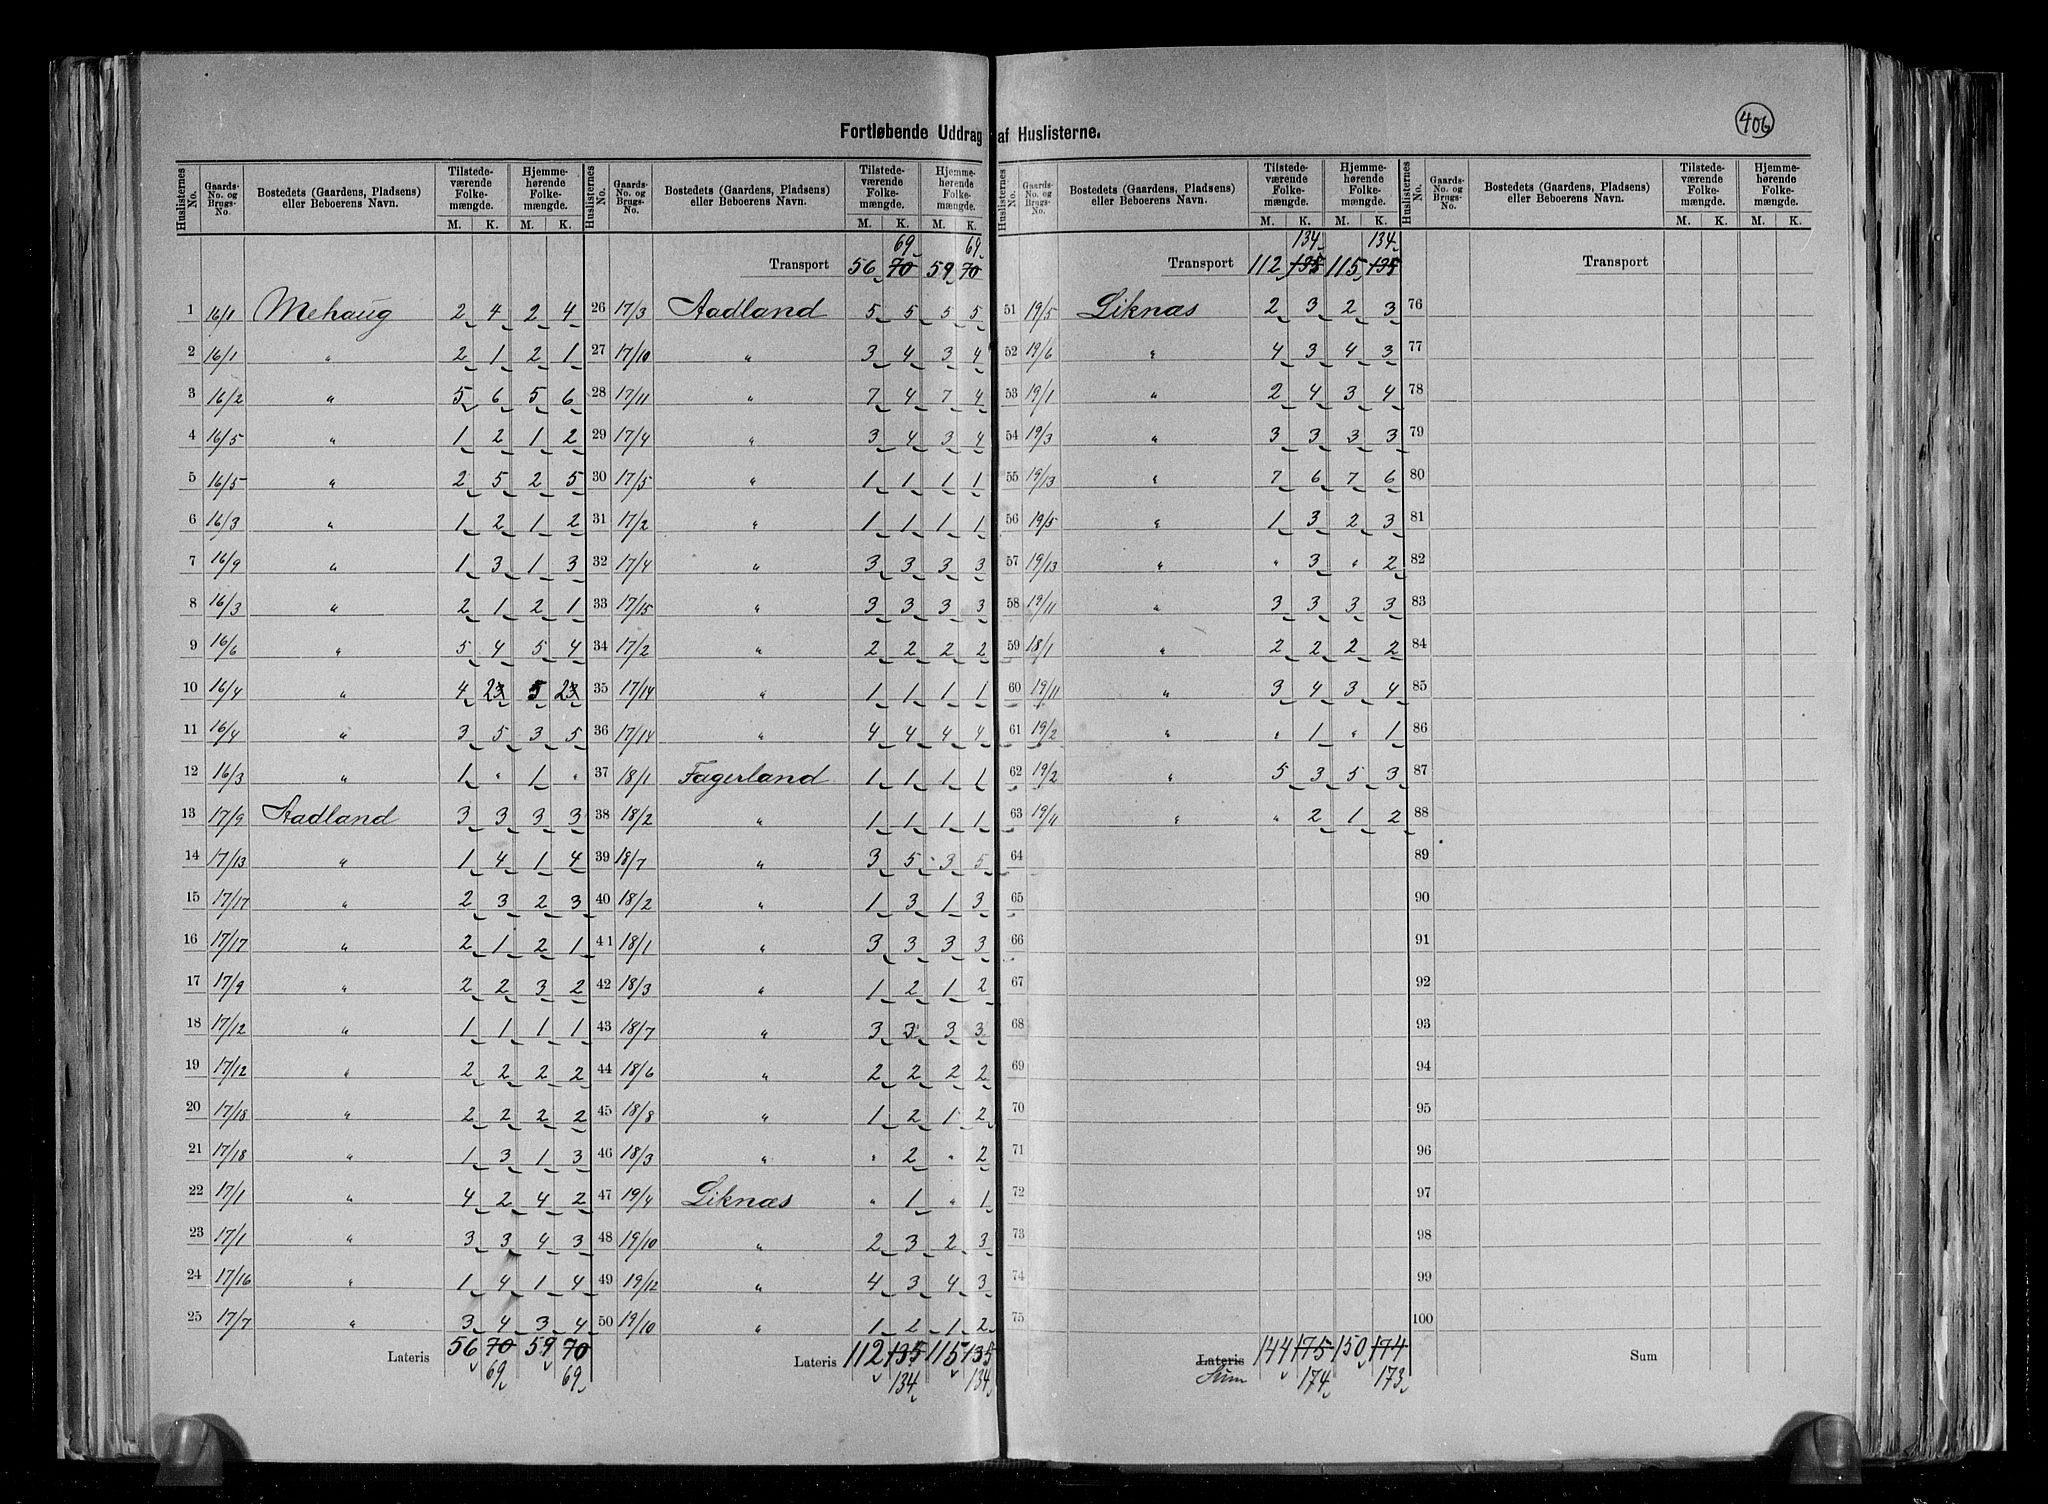 406
Fortløbende Uddrag af Huslisterne.
Huslisternes No. | Gaards-No. og Brugs-No. | Bostedets (Gaardens, Pladsens) eller Beboerens Navn. | Tilstedeværende Folkemængde. M. K. | Hjemmehørende Folkemængde. M. K.
1 16/1 Mehaug 2 4 2 4
2 16/1 " 2 1 2 1
3 16/2 " 5 6 5 6
4 16/5 " 1 2 1 2
5 16/5 " 2 5 2 5
6 16/3 " 1 2 1 2
7 16/9 " 1 3 1 3
8 16/3 " 2 1 2 1
9 16/6 " 5 4 5 4
10 16/4 " 4 2 3 5 2 3
11 16/4 " 3 5 3 5
12 16/3 " 1 " 1 "
13 17/9 Aadland 3 3 3 3
14 17/13 " 1 4 1 4
15 17/17 " 2 3 2 3
16 17/17 " 2 1 2 1
17 17/9 " 2 2 3 2
18 17/12 " 1 1 1 1
19 17/12 " 2 2 2 2
20 17/18 " 2 2 2 2
21 17/18 " 1 3 1 3
22 17/1 " 4 2 4 2
23 17/1 " 3 3 4 3
24 17/16 " 1 4 1 4
25 17/7 " 3 4 3 4
Lateris 56 70 59 70
69 69
Huslisternes No. | Gaards-No. og Brugs-No. | Bostedets (Gaardens, Pladsens) eller Beboerens Navn. | Tilstedeværende Folkemængde. M. K. | Hjemmehørende Folkemængde. M. K.
69 69
Transport 56 70 59 70
26 17/3 Aadland 5 5 5 5
27 17/10 " 3 4 3 4
28 17/11 " 7 4 7 4
29 17/4 " 3 4 3 4
30 17/5 " 1 1 1 1
31 17/2 " 1 1 1 1
32 17/4 " 3 3 3 3
33 17/15 " 3 3 3 3
34 17/2 " 2 2 2 2
35 17/14 " 1 1 1 1
36 17/14 " 4 4 4 4
37 18/1 Fagerland 1 1 1 1
38 18/2 " 1 1 1 1
39 18/7 " 3 5 3 5
40 18/2 " 1 3 1 3
41 18/1 " 3 3 3 3
42 18/3 " 1 2 1 2
43 18/7 " 3 3 3 3
44 18/6 " 2 2 2 2
45 18/8 " 1 2 1 2
46 18/3 " " 2 " 2
47 19/4 Liknæs " 1 " 1
48 19/10 " 2 3 2 3
49 19/12 " 4 3 4 3
50 19/10 " 1 2 1 2
Lateris 112 135 115 135
134 134
Huslisternes No. | Gaards-No. og Brugs-No. | Bostedets (Gaardens, Pladsens) eller Beboerens Navn. | Tilstedeværende Folkemængde. M. K. | Hjemmehørende Folkemængde. M. K.
134 134
Transport 112 135 115 135
51 19/5 Liknæs 2 3 2 3
52 19/6 " 4 3 4 3
53 19/1 " 2 4 3 4
54 19/3 " 3 3 3 3
55 19/13 " 7 6 7 6
56 19/5 " 1 3 2 3
57 19/13 " " 3 " 2
58 19/11 " 3 3 3 3
59 18/1 " 2 2 2 2
60 19/11 " 3 4 3 4
61 19/2 " " 1 " 1
62 19/2 " 5 3 5 3
63 19/4 " " 2 1 2
64
65
66
67
68
69
70
71
72
73
74
75
Lateris 144 175 150 174
Sum 174 173
Huslisternes No. | Gaards-No. og Brugs-No. | Bostedets (Gaardens, Pladsens) eller Beboerens Navn. | Tilstedeværende Folkemængde. M. K. | Hjemmehørende Folkemængde. M. K.
Transport
76
77
78
79
80
81
82
83
84
85
86
87
88
89
90
91
92
93
94
95
96
97
98
99
100
Sum